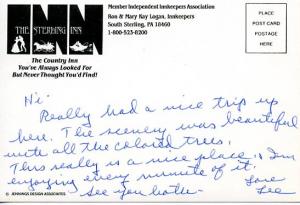 THE STERLING INN
The Country Inn
You've Always Looked For
But Never Thought You'd Find!
Member Independent Innkeepers Association
Ron & Mary Kay Logan, Innkeepers
South Sterling, PA 18460
1-800-523-8200
PLACE
POST CARD
POSTAGE
HERE
Hi
Really had a nice trip up
here. The scenery was beautiful
with all the colored trees.
This really is a nice place & I'm
enjoying every minute of it.
See you both - Love
Lee
© JENNINGS DESIGN ASSOCIATES